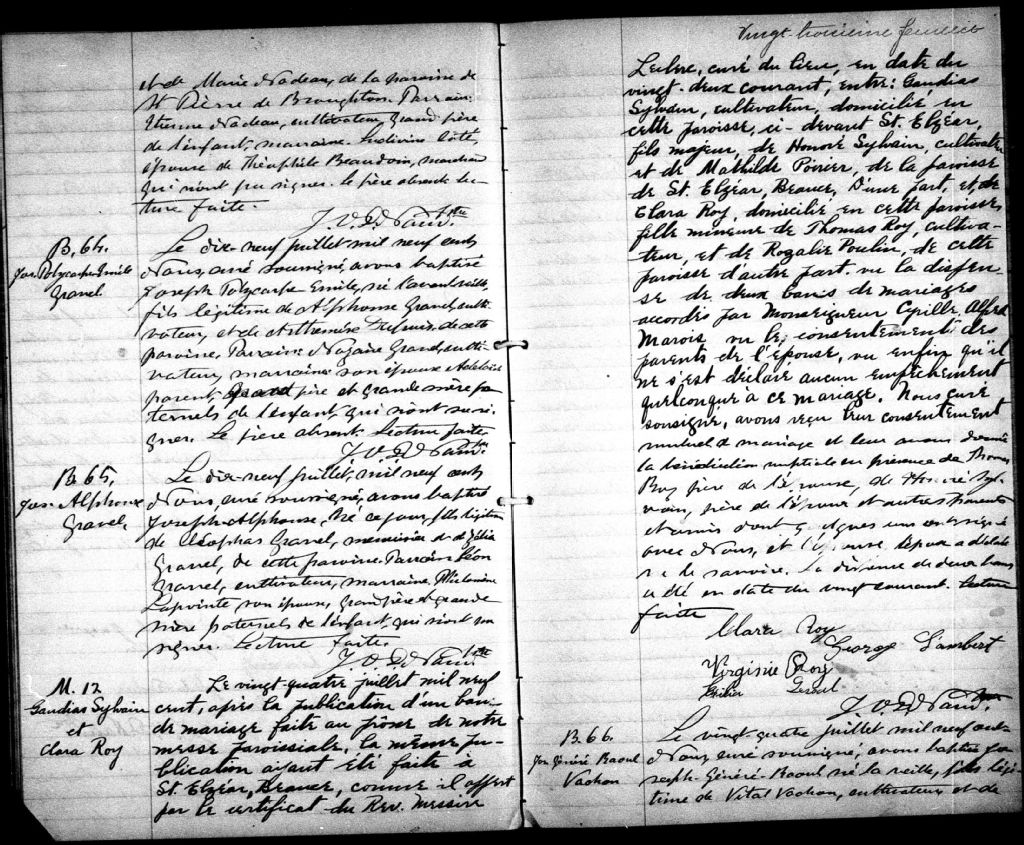 et de Marie Nadeau, de la paroisse de
St Pierre de Broughton. Parrain:
Etienne Nadeau, cultivateur, grand père
de l'enfant, marraine Ludivine Côté,
épouse de Théophile Beaudoin, marchand
qui n'ont pu signer. le père absent. lec-
ture faite.
J. O. D. Naud. Ptre
B. 64.
Jos. Polycarpe Emile
Gravel.
Le dix-neuf juillet mil neuf cent
Nous, curé soussigné, avons baptisé
Joseph Polycarpe Emile, né l'avant veille,
fils légitime de Alphonse Gravel, culti-
vateur, et de Arthémise de cette
paroisse. Parrain: Nazaire Gravel, culti-
vateur, marraine son épouse Adelaide
parent, grand père et grande mère pa-
ternels de l'enfant, qui n'ont su si-
gner. Le père absent. Lecture faite.
J. O. D. Naud. Ptre
B. 65.
Jos. Alphonse
Gravel.
Le dix-neuf juillet, mil neuf cent
Nous, curé soussigné, avons baptisé
Joseph-Alphonse, né ce jour, fils légitime
de Cléophas Gravel, menuisier et de Délia
Gravel, de cette paroisse. Parrain Léon
Gravel, cultivateur, marraine, Philomène
Lapointe son épouse, grand père et grande
mère paternels de l'enfant, qui n'ont su
signer. Lecture faite.
J. O. D. Naud. Ptre
M. 12
Gaudias Sylvain
et
Clara Roy
Le vingt quatre juillet mil neuf
cent, après la publication d'un ban
de mariage faite au prône de notre
messe paroissiale, la même pu-
blication ayant été faite à
St. Elzéar, Beauce, comme il appert
par le certificat du Rev. Messire
Vingt-troisième feuillet
Leclerc, curé du lieu, en date du
vingt-deux courant, entre: Gaudias
Sylvain, cultivateur, domicilié en
cette paroisse, ci-devant St. Elzéar,
fils majeur, de Honoré Sylvain, cultivateur
et de Mathilde Poirier, de la paroisse
de St. Elzéar, Beauce, D'une part, et, de
Clara Roy, domicilié en cette paroisse,
fille mineure de Thomas Roy, cultiva-
teur, et de Rozalie Poulin, de cette
paroisse d'autre part. vu la dispen-
se de deux bans de mariages
accordés par Monseigneur Cyrille Alfred
Marois vu le consentement des
parents de l'épouse, vu enfin qu'il
ne s'est déclaré aucun empêchement
quelconque à ce mariage. Nous curé
soussigné, avons reçu leur consentement
mutuel de mariage et leur avons donné
la bénédiction nuptiale en présence de Thomas
Roy père de l'épouse, de Honoré Syl-
vain, père de l'époux et autres parents
et amis dont quelques uns ont signé
avec Nous, et l'épouse. l'époux a déclaré
ne le savoir. La dispense de deux bans
a été en date du vingt courant. Lecture
faite
Clara Roy
George Lambert
Virginie Roy
J. O. D. Naud. Ptre
B. 66.
Jos Généré Raoul
Vachon
Le vingt quatre juillet mil neuf cent
Nous, curé soussigné, avons baptisé Jo-
seph-Généré-Raoul né la veille, fils légi-
time de Vital Vachon, cultivateur, et de